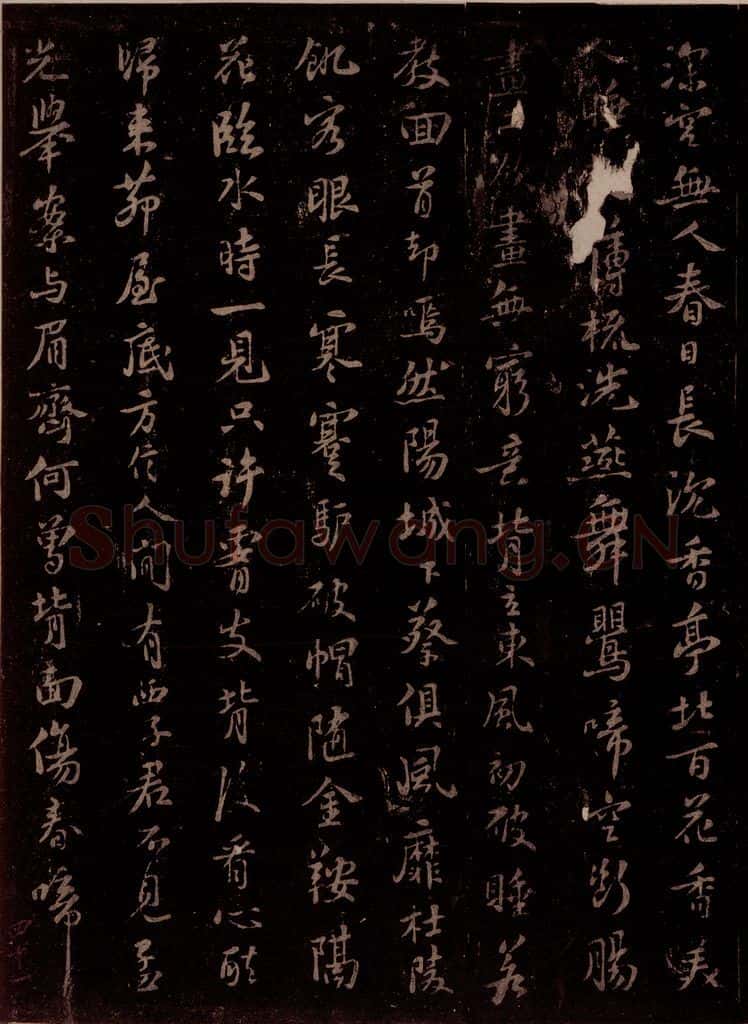 深宮無人春日長沈香亭北百花香美
人睡薄梳洗燕舞鶯啼空斷腸
畫工欲畫無窮意背立東風初破睡若
教囬首却嫣然陽城下蔡俱風靡杜陵
飢客眼長寒蹇驢破帽隨金鞍隔
花臨水時一見只許腰支背後看心醉
歸來茆屋底方信人間有西子君不見孟
光舉案与眉齊何曾背面傷春啼
Shufawang.CN